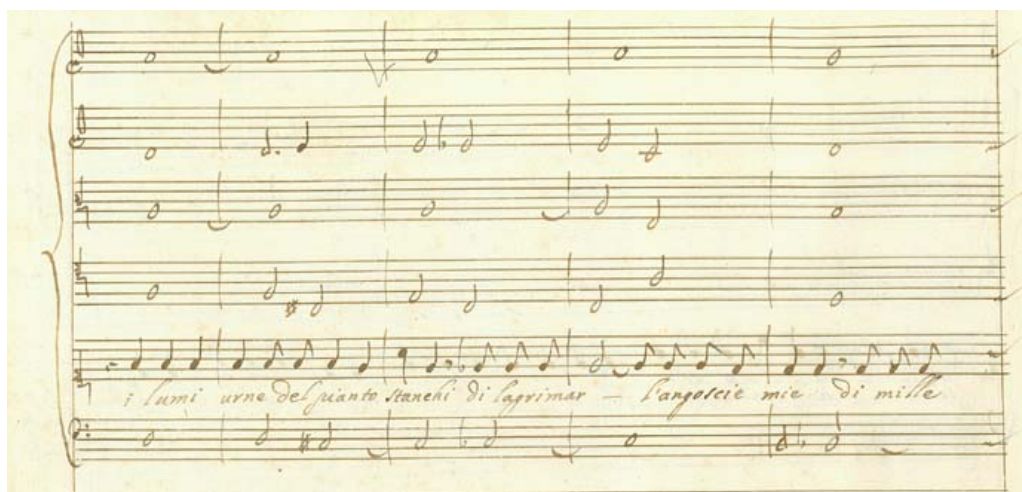 i lumi urne del pianto stanchi di lagrimar – l'angoscie mie di mille